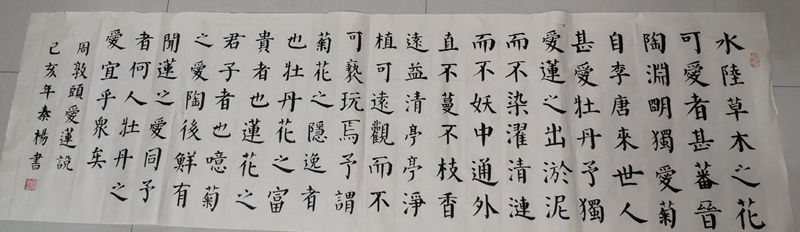 水陸草木之花
可愛者甚蕃晉
陶淵明獨愛菊
自李唐來世人
甚愛牡丹予獨
愛蓮之出淤泥
而不染濯清漣
而不妖中通外
直不蔓不枝香
遠益清亭亭淨
植可遠觀而不
可褻玩焉予謂
菊花之隱逸者
也牡丹花之富
貴者也蓮花之
君子者也噫菊
之愛陶後鮮有
聞蓮之愛同予
者何人牡丹之
愛宜乎眾矣
周敦頤愛蓮說
己亥年秦楊書